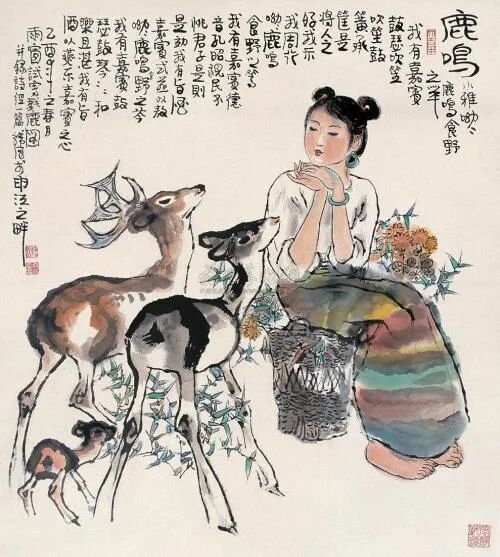 鹿鳴
小雅呦々
鹿鳴食野
之苹
我有嘉賓
鼓瑟吹笙
吹笙鼓
簧承
筐是
將人之
好我示
我周行
呦々鹿鳴
食野之蒿
我有嘉賓德
音孔昭視民不
恌君子是則
是効我有旨酒
嘉賓式燕以敖
呦々鹿鳴野之芩
我有嘉賓鼓
瑟鼓琴々和
樂且湛我有旨
酒以燕樂嘉賓之心
乙酉年之春月
雨窗試寫鹿圖
并錄詩經一篇於甬江之畔